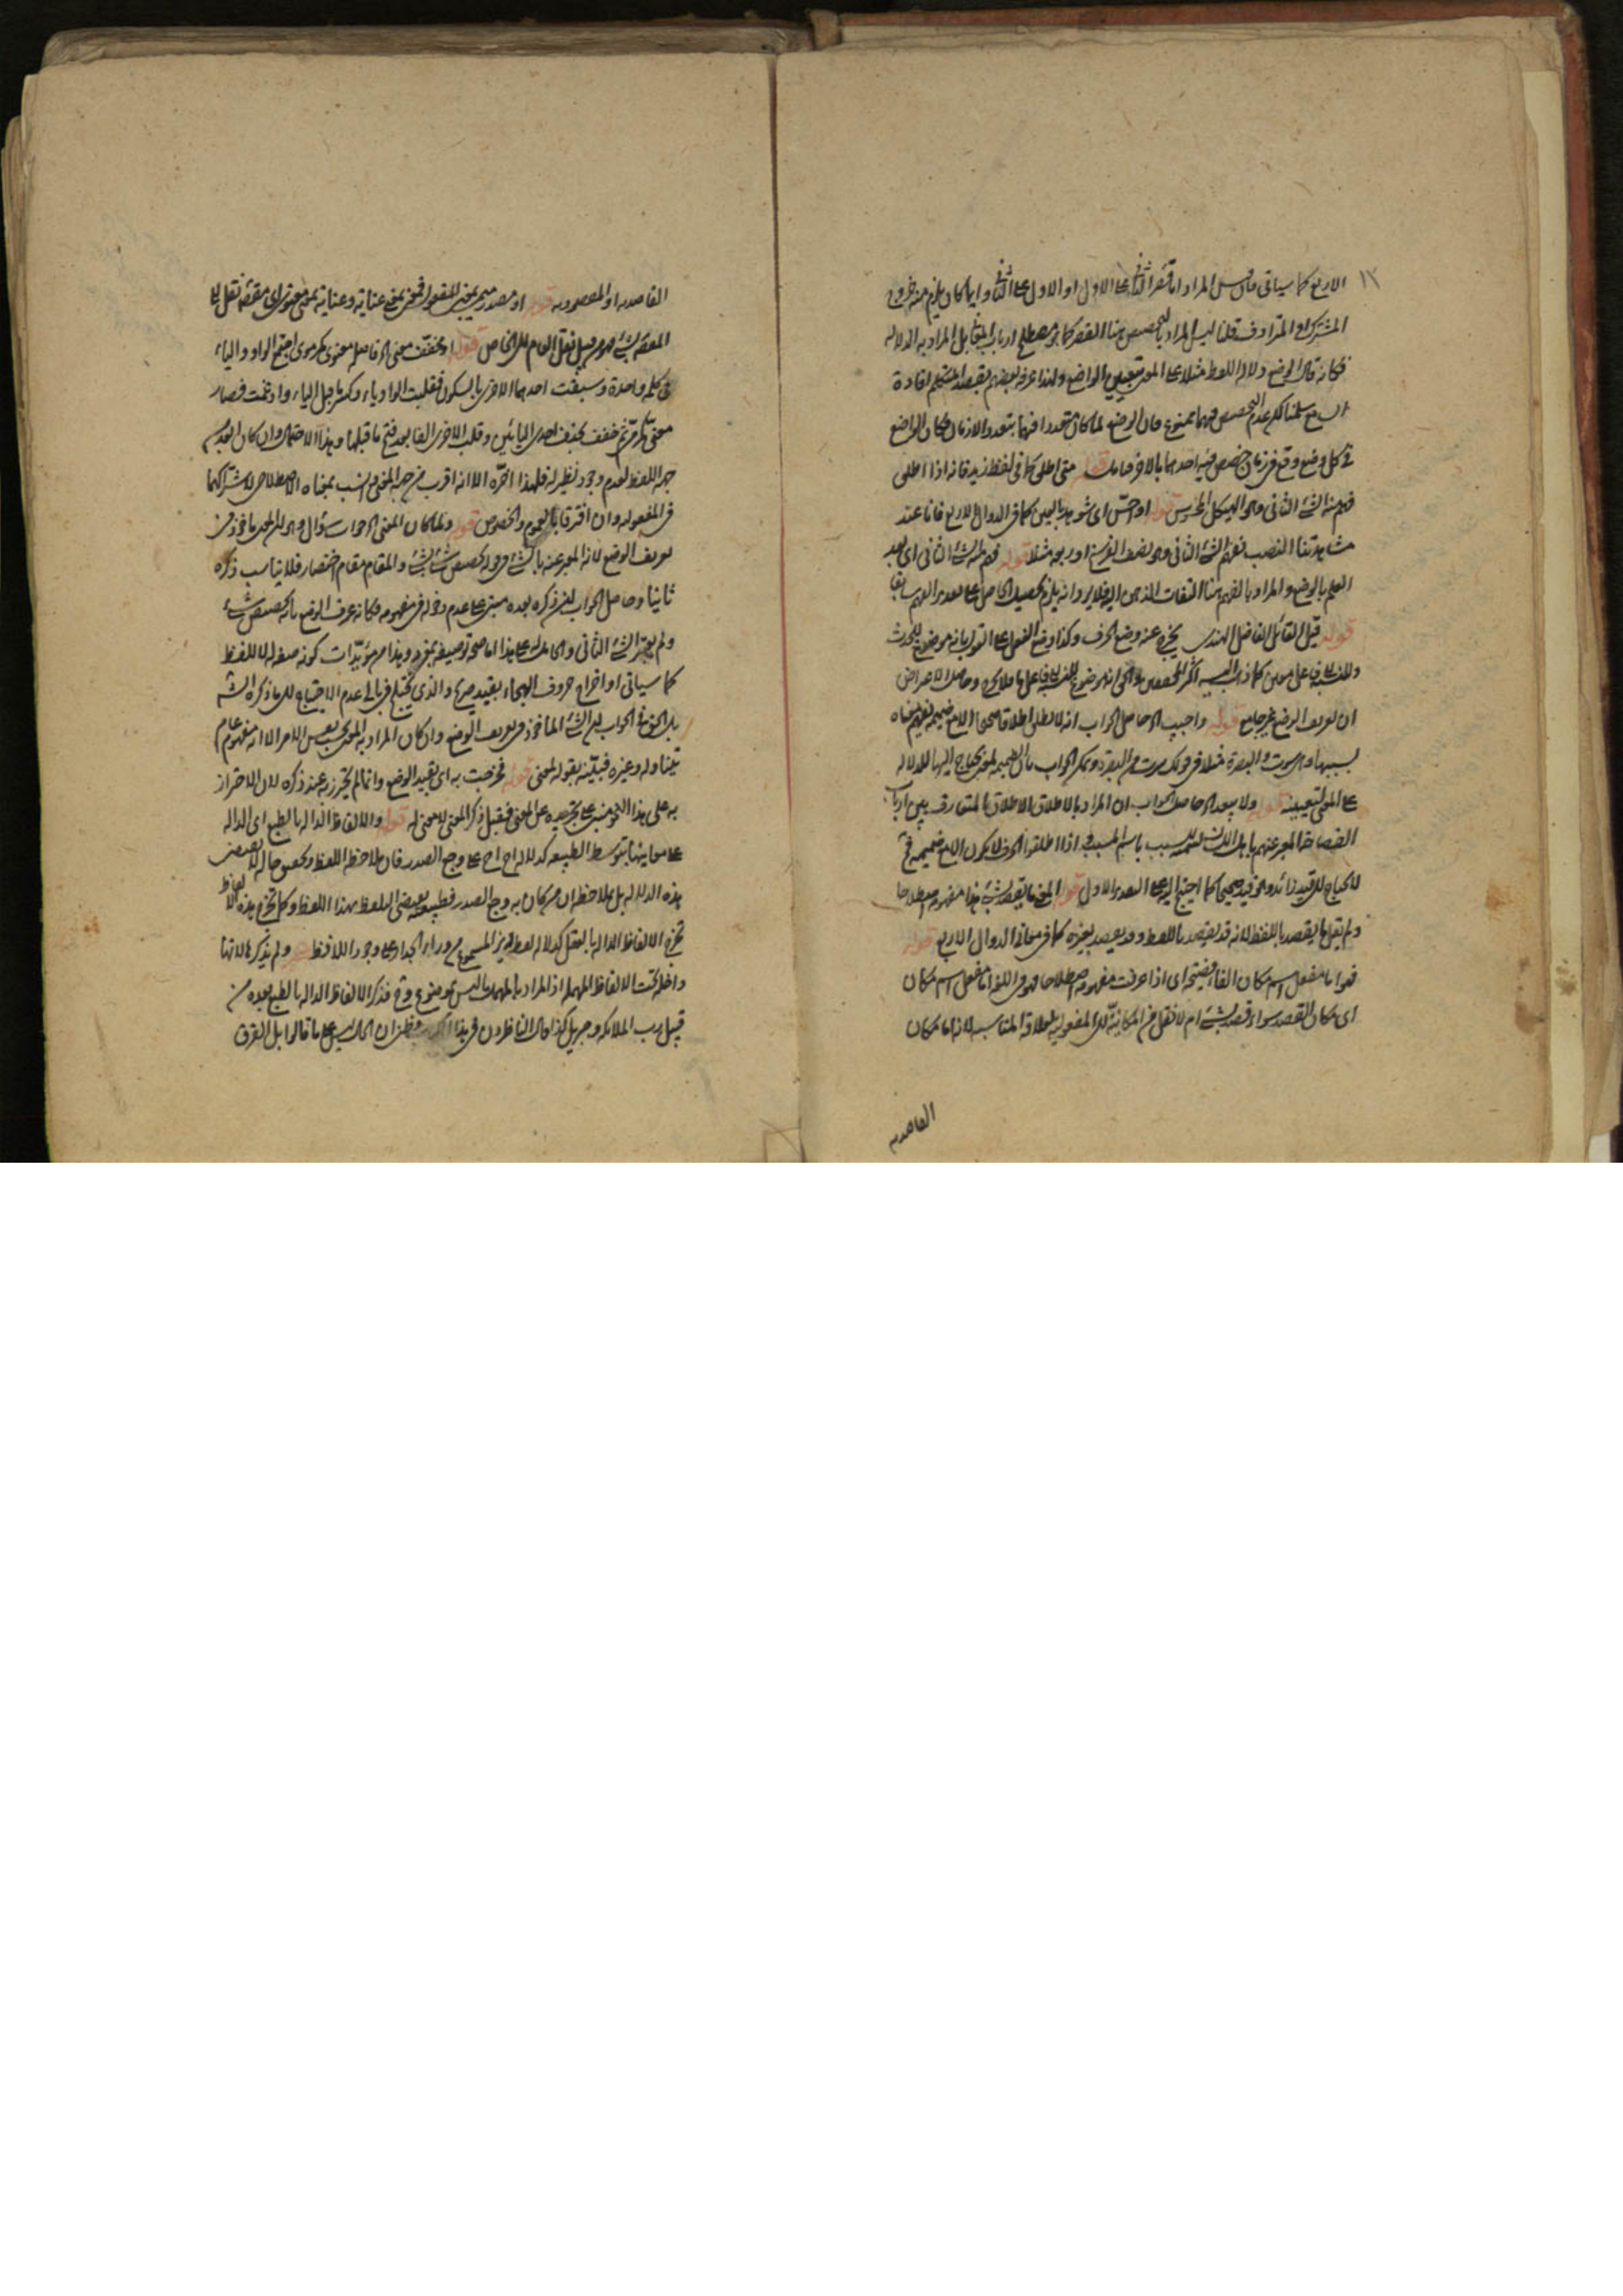 ١٢
الاربع كما سياتى فان قيل المراد اما قصر الثانى على الاول او الاول على الثانى وايا ما كان يلزم منه خروج
المشترك او المترادف قلنا ليس المراد بالتخصيص هنا القصر كما هو مصطلح ارباب المراد به الدلالة
فكانه قال الوضع دلالة اللفظ مثلا على المعنى بتعيين الواضع ولهذا عرفه بعضهم بقصد المتكلم افادة
سلمنا لكن عدم التخصيص فيهما ممنوع فان الوضع لما كان متعددا فيهما بتعدد الازمان فكان الواضع
فى كل وضع وقع فى زمان خصص فيه احدهما بالاخر قوله متى اطلق كما فى لفظ زيد فانه اذا اطلق
فهم منه الشئ الثانى وهو الهيكل المحسوس قوله او احس اى شوهد بالعين كما فى الدوال الاربع فانا عند
مشاهدتنا النصب نفهم الشئ الثانى وهو نصف الفرسخ او ربعه مثلا قوله فهم منه الشئ الثانى اى بعد
العلم بالوضع والمراد بالفهم هنا التفات الذهن اليه فلا يرد انه يلزم تحصيل الحاصل على تقدير الفهم سابقا
قوله قيل القائل الفاضل الهندى يخرج عنه وضع الحرف وكذا وضع الفعل على القول بانه موضوع للحدث
والنسبة الى فاعل معين كما ذهب اليه اكثر المحققين وحاصل الاعتراض
ان تعريف الوضع غير جامع قوله واجيب اه حاصل الجواب انه لا يطلق اطلاقا صحيحا الا مع ضميمة تفهم معناه
بسببها وهى سرت والبصرة مثلا فى قولك سرت من البصرة
على المعنى لتعيينه قوله ولا يبعد اه حاصل الجواب ان المراد بالاطلاق الاطلاق المتعارف بين ارباب
الفصاحة المعبر عنهم باهل اللسان تسمية للسبب باسم المسبب اذا اطلقوا الحرف لا يكون الا مع ضميمة فح
لا يحتاج الى قيد زائد وهو قيد صحيح كما احتيج اليه على التقدير الاول قوله المعنى ما يقصد بشئ هذا مفهومه اصطلاحا
ولم يقل ما يقصد باللفظ لانه قد يقصد باللفظ وقد يقصد بغيره كما فى معانى الدوال الاربع قوله
فهو اما مفعل اسم مكان الفاء فصيحة اى اذا عرفت مفهومه اصطلاحا فهو فى اللغة اما مفعل اسم مكان
اى مكان القصد سواء قصد بشئ ام لا نقل من المكانية الى المفعولية لعلاقة المناسبة لانه اما مكان
القاصدية
القاصدية او المقصودية قوله او مصدر ميمى بمعنى المفعول فمعنى بمعنى عناية وعناية بمعنى معنوى اى مقصود نقل الى
المقصد بشئ فهو من قبيل نقل العام الى الخاص قوله او مخفف معنى اه فاصله معنوى كمرموى اجتمع الواو والياء
فى كلمة واحدة وسبقت احدهما الاخرى بالسكون فقلبت الواو ياء وكسر ما قبل الياء وادغمت فصار
معنى كمرمى ثم خفف بحذف احدى اليائين وقلب الاخرى الفا بعد فتح ما قبلها وهذا الاحتمال وان كان ابعد من
جهة اللفظ لعدم وجود نظير له فلهذا اخره الا انه اقرب من جهة المعنى وانسب بمعناه الاصطلاحى لاشتراكهما
فى المفعولية وان افترقا بالعموم والخصوص قوله ولما كان المعنى اه جواب سؤال وهو ان المعنى ماخوذ فى
تعريف الوضع لانه المعبر عنه بالشئ فى قوله تخصيص شئ بشئ والمقام مقام اختصار فلا يناسب ذكره
ثانيا وحاصل الجواب ان ذكره بعده مبنى على عدم دخوله فى مفهومه فكانه عرف الوضع بانه تخصيص شئ
ولم يعتبر الشئ الثانى والحامل على هذا اما صحة توصيفه بمفرد وهذا من مؤيدات كونه صفة له لا للفظ
كما سياتى او اخراج حروف الهجاء بقيد صريح والذى يختلج فى بالى عدم الاحتياج الى ما ذكره الشه
بل الحق فى الجواب ان الشئ الماخوذ فى تعريف الوضع وان كان المراد به المعنى بحسب نفس الامر الا انه مفهوم عام
يتناوله وغيره فبينه بقوله لمعنى قوله فخرجت به اى بقيد الوضع وانما لم يحترز به عند ذكره لان الاحتراز
به على هذا النحو مبنى على تجريده عن المعنى فقبل ذكر المعنى لا معنى له قوله والالفاظ الدالة بالطبع اى الدالة
على معانيها بتوسط الطبيعة كدلالة اح اح على وجع الصدر فان ملاحظة اللفظ وبعض حاله لا يقتضى
هذه الدلالة بل بملاحظة ان من كان به وجع الصدر فطبيعته يقتضى التلفظ بهذا اللفظ وكما تخرج هذه الالفاظ
تخرج الالفاظ الدالة بالعقل كدلالة لفظ ديز المسموع من وراء الجدار على وجود اللافظ ولم يذكرها لانها
داخلة تحت الالفاظ المهملة اذ المراد بالمهملات ما ليس بموضوع وح فذكر الالفاظ الدالة بالطبع بعده من
قبيل رب الملائكة وجبريل كذا قال الناظرون فى هذا الكتاب وظنى ان الحال ليس على ما قالوا بل الفرق